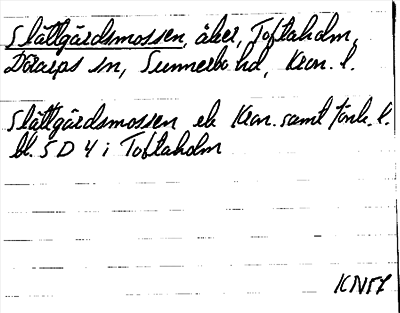 Slättgärdsmossen, åker, Toftaholm,
Dörarps sn, Sunnerbo hd, Kron. l.
Slättgärdsmossen ek Kron. samt Jönk. l.
bl. 5 D 4 i Toftaholm